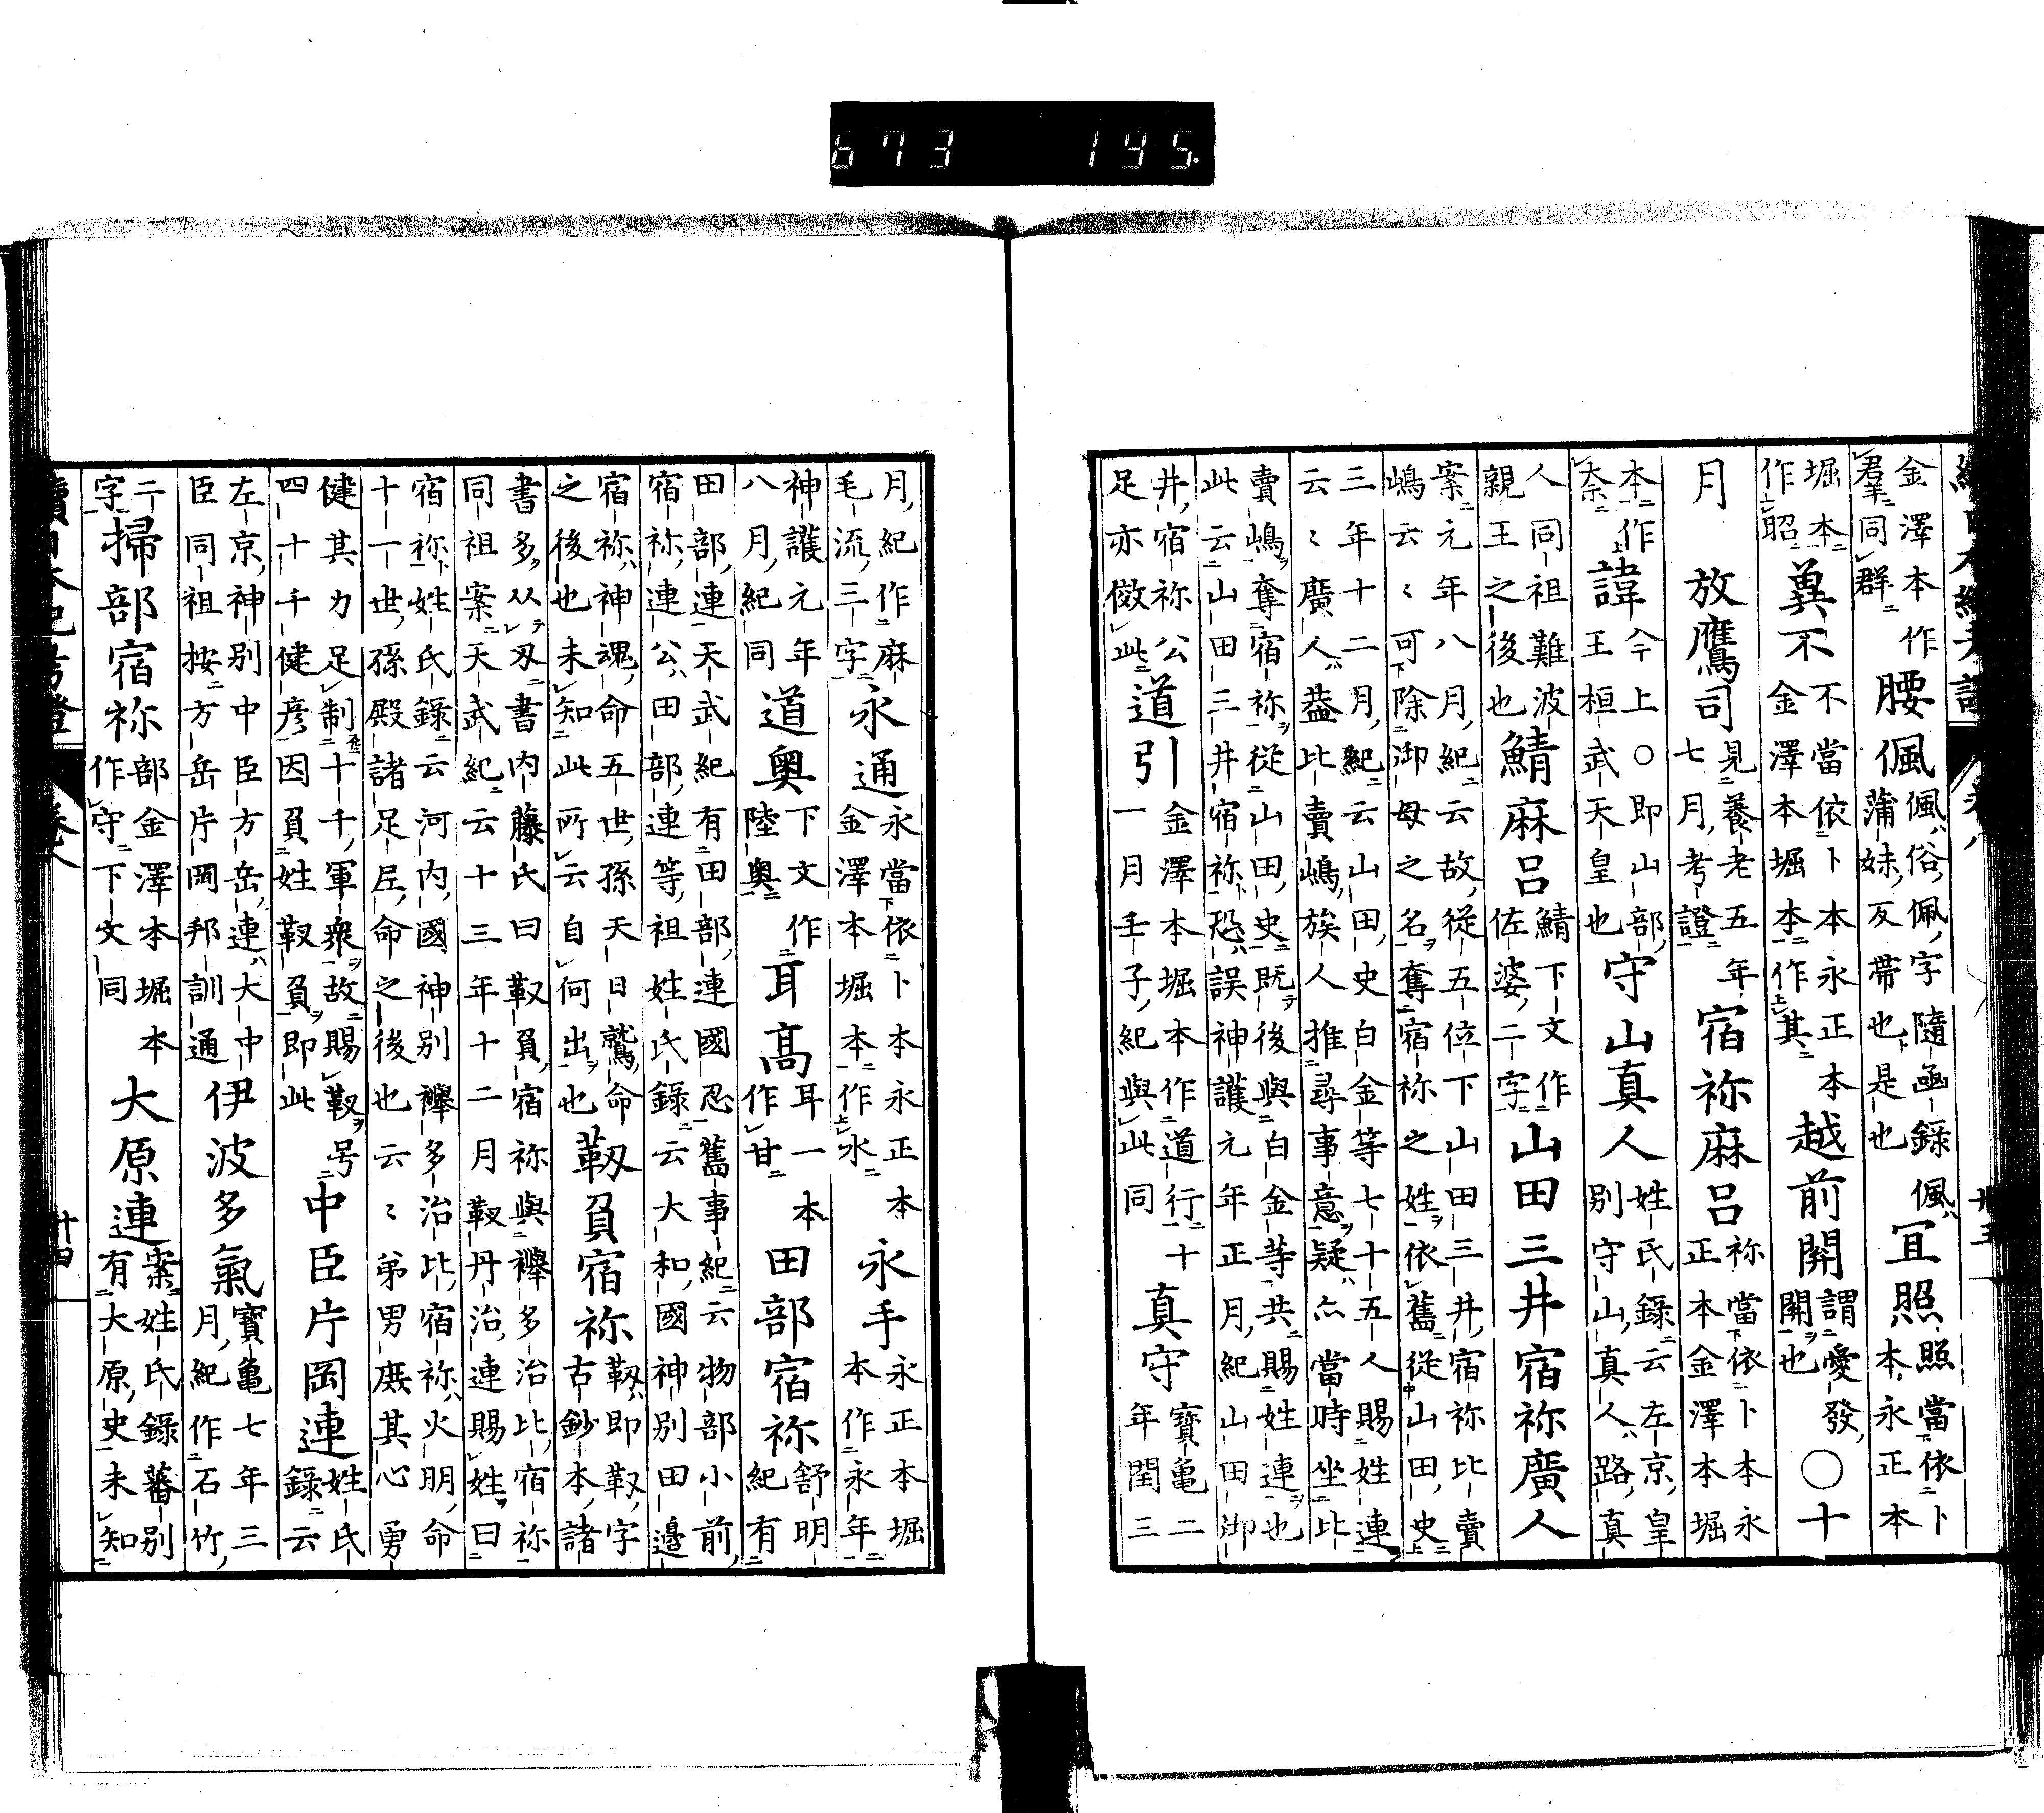 金澤本作羣同群腰偑偑俗佩字隨函錄偑蒲妹反帶也是也宜照照當依卜本永正本
堀本作昭冀不不當依卜本永正本金澤本堀本作其越前關謂愛發關也〇十
月放鷹司見養老五年七月考證宿祢麻呂祢當依卜本永正本金澤本堀
本作奈諱今上〇即山部王桓武天皇也守山真人姓氏錄云左京皇別守山真人路真
人同祖難波親王之後也鯖麻呂鯖下文作佐婆二字山田三井宿祢廣人
案元年八月紀云故從五位下山田三井宿祢比賣嶋云〻可除御母之名奪宿祢之姓依舊從山田史
三年十二月紀云山田史白金等七十五人賜姓連云〻廣人蓋比賣嶋族人推尋事意疑亦當時坐比
賣嶋奪宿祢從山田史既後與白金等共賜姓連也此云山田三井宿祢恐誤神護元年正月紀山田御
井宿祢公足亦倣此道引金澤本堀本作道行十一月壬子紀與此同真守寶亀二年閏三
月紀作麻毛流三字永通永當依卜本永正本金澤本堀本作水永手永正本堀本作永年
神護元年八月紀同道奥下文作陸奥耳高耳一本作甘田部宿祢舒明紀有
田部連天武紀有田部連國忍舊事紀云物部小前宿祢連公田部連等祖姓氏錄云大和國神別田邊
宿祢神魂命五世孫天日鷲命之後也未知此所云自何出也靱負宿祢靱即靫字古鈔本諸
書多从刄書内藤氏曰靫負宿祢與襷多治比宿祢同祖案天武紀云十三年十二月靫丹治連賜姓曰
宿祢姓氏錄云河内國神別襷多治比宿祢火明命十一世孫殿諸足尼命之後也云〻弟男庶其心勇
健其力足制十千軍衆故賜靫号四十千健彦因負姓靫負即此中臣片岡連姓氏錄云
左京神別中臣方岳連大中臣同祖按方岳片岡邦訓通伊波多氣寶亀七年三月紀作石竹
二字掃部宿祢部金澤本堀本作守下文同大原連案姓氏錄蕃別有大原史未知
續日本紀考證
卷八
十四